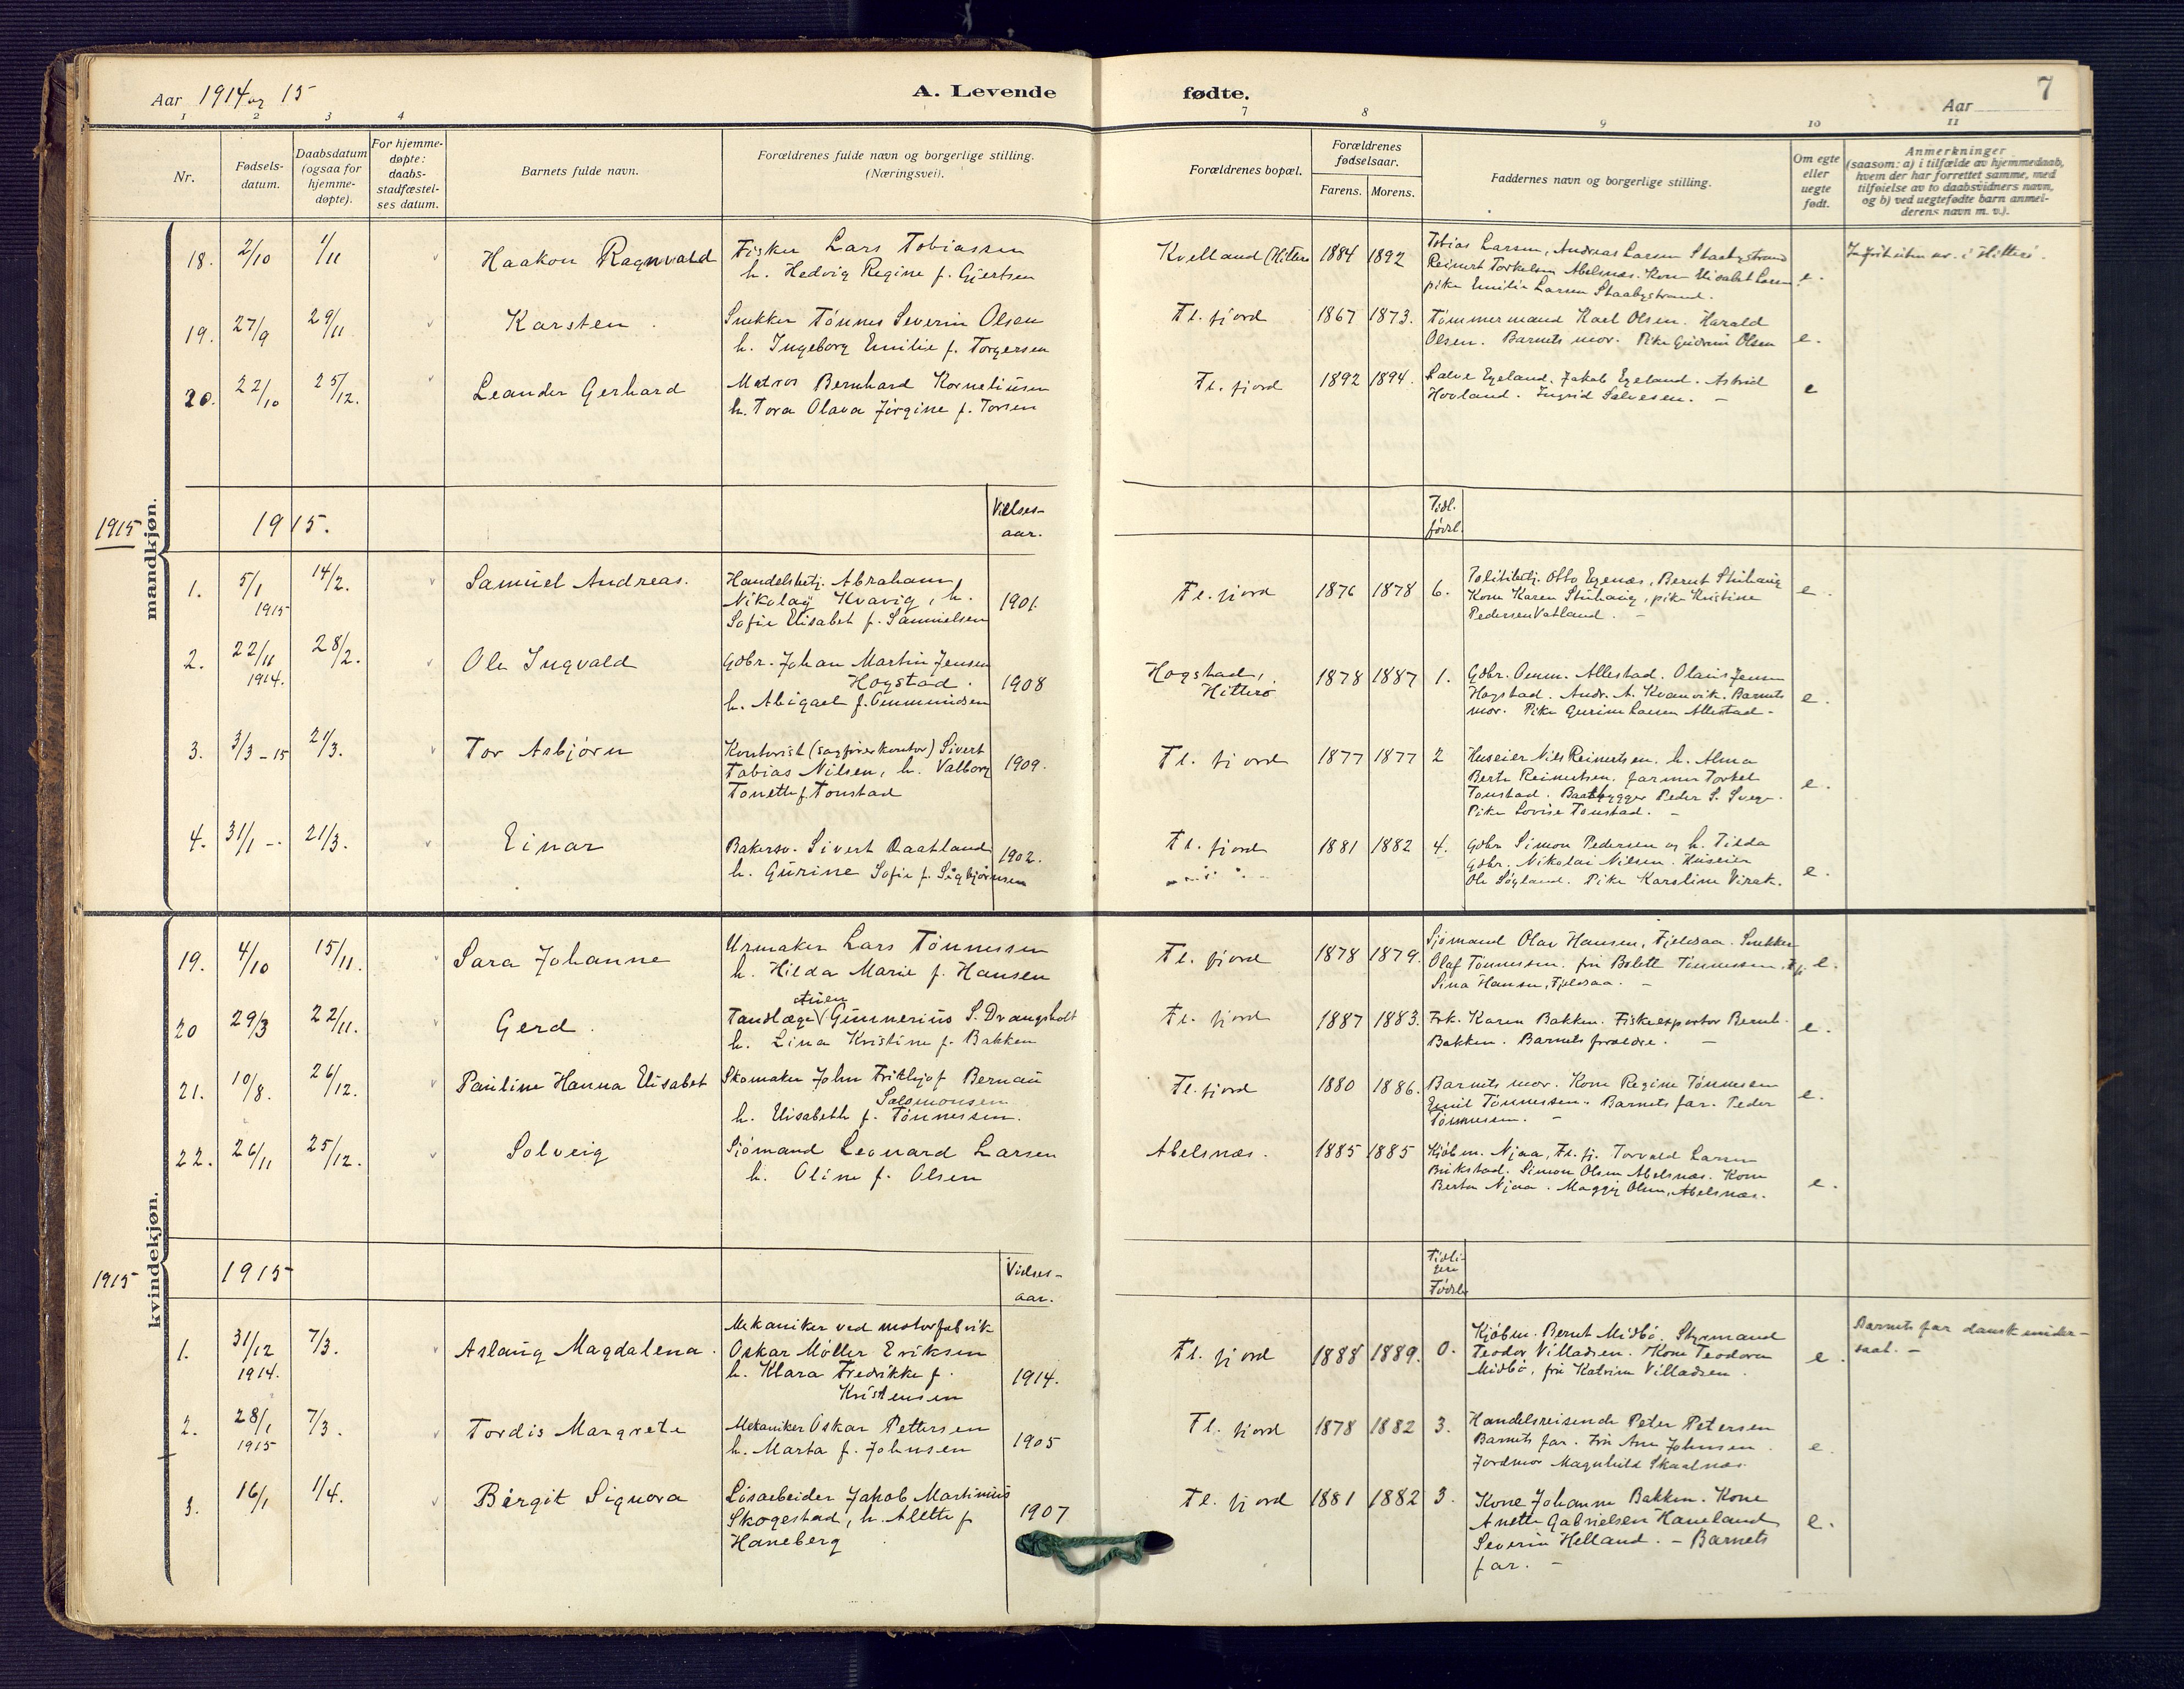 Aar 1914 og 15
A. Levende
fødte.
7
Aar
1 2 3 4 7 8 9 10 11
Nr.
Fødsels-
datum.
Daabsdatum
(ogsaa for
hjemme-
døpte).
For hjemme-
døpte:
daabs-
stadfæstel-
ses datum.
Barnets fulde navn.
Forældrenes fulde navn og borgerlige stilling.
(Næringsvei).
Forældrenes bopæl.
Forældrenes
fødselsaar.
Farens. Morens.
Faddernes navn og borgerlige stilling.
Om egte
eller
uegte
født.
Anmerkninger
(saasom: a) i tilfælde av hjemmedaab,
hvem der har forrettet samme, med
tilføielse av to daabsvidners navn,
og b) ved uegtefødte barn anmel-
derens navn m. v.).
mandkjøn.
18. 2/10 1/11 Haakon Ragnvald
Fisker Lars Tobiassen
h. Hedvig Regine f. Gjertsen
Kvelland (Hitterø 1884 1892
Tobias Larsen, Andreas Larsen Staabystrand
Reinert Torkelsen Abelsnæs. Kone Elisabet Larsen
pike Emilie Larsen Staabystrand.
e.
i Hitterø.
19. 27/9 29/11 Karsten.
Snekker Tönnes Severin Olsen
h. Ingeborg Emilie f. Torgersen
Fl. fjord 1867 1873.
Tömmermand Karl Olsen. Harald
Olsen. Barnets mor. Pike Gudrun Olsen
e.
20. 22/10 25/12. Leander Gerhard
Matros Bernhard Korneliusen
h. Tora Olava Jörgine f. Torsen
Fl. fjord 1892 1894.
Salve Egeland. Jakob Egeland. Astrid
Hovland. Ingrid Salvesen. –
e
1915
1915.
Vielses-
aar.
Tidl.
fødsl.
1. 5/1 1915 14/2. Samuel Andreas.
Handelsbetj. Abraham
Nikolay Kvavig, h.
Sofie Elisabet f. Samuelsen
1901.
Fl. fjord 1876 1878 6.
Politibetj. Otto Egenæs, Bernt Stuhaug
Kone Karen Stuhaug, pike Kristine
Pedersen Vatland. –
e.
2. 22/11 1914. 28/2. Ole Ingvald
Gdbr. Johan Martin Jensen
Hogstad.
h. Abigael f. Ommundsen
1908
Hogstad,
Hitterø
1878 1887 1.
Gdbr. Omm. Allestad. Olaus Jensen
Hogstad. Andr. A. Kvanvik. Barnets
mor. Pike Gurine Larsen Allestad.
e.
3. 3/3 – 15 21/3. Tor Asbjörn
Kontorist (sagförerkontor) Sivert
Tobias Nilsen, h. Valborg
Tonette f. Tonstad
1909.
Fl. fjord 1877 1877 2
Huseier Nils Reinertsen. h. Alma
Berte Reinertsen. farmer Torkel
Tonstad. Baatbygger Peder S. Svege.
Pike Lovise Tonstad. –
e.
4. 31/1 –. 21/3. Einar
Bakersv. Sivert Raatland
h. Gurine Sofie f. Sigbjörnsen
1902.
Fl. fjord 1881 1882 4.
Gdbr Simon Pedersen og h. Tilda
Gdbr. Nikolai Nilsen. Huseier
Ole Søyland. Pike Karoline Virak.
e.
kvindekjøn.
19. 4/10 15/11. Sara Johanne
Urmaker Lars Tönnessen
h. Hilda Marie f. Hansen
Fl. fjord 1878 1879.
Sjömand Olav Hansen, Fjeldsaa. Snekker
Olaf Tönnessen. fru Bolette Tönnessen. Fj.
Sina Hansen, Fjeldsaa. –
e.
20 29/3 22/11. Gerd.
Tandlæge Gunnerius S. Drangsholt
h. Lina Kristine f. Bakken
Fl. fjord 1887 1883.
Frk. Karen Bakken. Fiskeexportør Bernh.
Bakken. Barnets forældre. –
e.
21. 10/8. 26/12. Pauline Hanna Elisabet
Skomaker John Frithjof Bernau
Salomonsen
h. Elisabeth f. Tönnessen.
Fl. fjord 1880 1886.
Barnets mor. Kone Regine Tönnesen
Emil Tönnessen. Barnets far. Peder
Tönnesen. –
e.
22. 26/11 25/12. Solveig
Sjömand Leonard Larsen
h. Oline f. Olsen
Abelsnæs. 1885 1885
Kjöbm. Njaa, Fl. fj. Torvald Larsen
Birkstad. Simon Olsen Abelsnæs. Kone
Berta Njaa. Maggij Olsen, Abelsnæs.
e.
1915
1915
Vielses-
aar.
Tidli-
gere
Födsler
1. 31/12 1914. 7/3. Aslaug Magdalena.
Mekaniker ved motorfabrik
Oskar Möller Eriksen
h. Klara Fredrikke f.
Kristensen
1914.
Fl. fjord 1888 1889. 0.
Kjöbm. Bernt Midbö. Styrmand
Teodor Villadsen. Kone Teodora
Midbö, fru Katrine Villadsen.
e
Barnets far dansk under-
saat. –
2. 28/1 1915 7/3. Tordis Margrete
Mekaniker Oskar Pettersen
h. Marta f. Johnsen
1905
Fl. fjord 1878 1882 3.
Handelsreisende Peter Petersen
Barnets far. Fru Ane Johnsen.
Jordmor Magnhild Skaalnæs.
e.
3. 16/1 1/4. Birgit Signora
Lösarbeider Jakob Martinius
Skogestad, h. Alette f.
Haneberg
1907
Fl. fjord 1881 1882 3.
Kone Johanne Bakken. Kone
Anette Gabrielsen Haneland
Severin Helland. – Barnets
far. –
e.